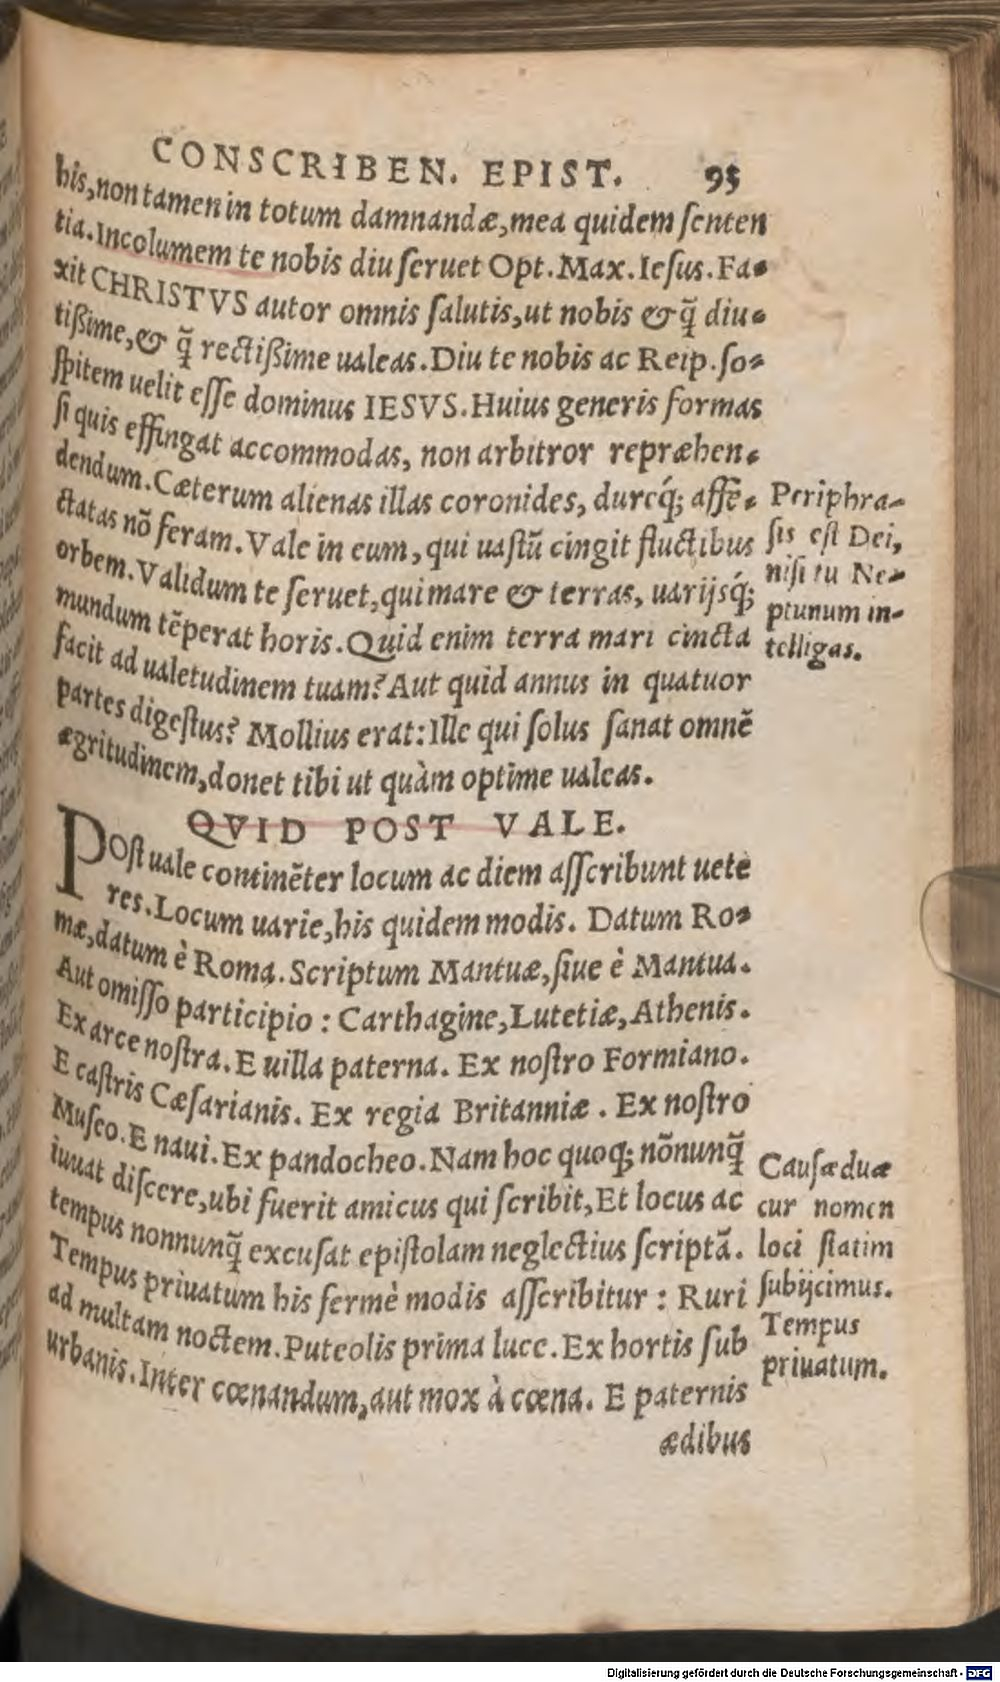 CONSCRIBEN. EPIST. 95
bis, non tamen in totum damnandæ, mea quidem ſenten
tia. Incolumem te nobis diu ſeruet Opt. Max. Ieſus. Fa⸗
xit CHRISTVS autor omnis ſalutis, ut nobis & q̃ diu⸗
tißime, & q̃ rectißime ualeas. Diu te nobis ac Reip. ſo⸗
ſpitem uelit eſſe dominus IESVS. Huius generis formas
ſi quis effingat accommodas, non arbitror repræhen⸗
dendum. Cæterum alienas illas coronides, dureq́; affẽ⸗
ctatas nõ feram. Vale in eum, qui uaſtũ cingit fluctibus
orbem. Validum te ſeruet, qui mare & terras, uarijsq́;
mundum tẽperat horis. Quid enim terra mari cincta
facit ad ualetudinem tuam? Aut quid annus in quatuor
partes digeſtus? Mollius erat: Ille qui ſolus ſanat omnẽ
ægritudinem, donet tibi ut quàm optime ualeas.
Periphra⸗
ſis eſt Dei,
niſi tu Ne⸗
ptunum in⸗
telligas.
QVID POST VALE.
POſt uale continẽter locum ac diem aſſcribunt uete
res. Locum uarie, his quidem modis. Datum Ro⸗
mæ, datum è Roma. Scriptum Mantuæ, ſiue è Mantua.
Aut omiſſo participio : Carthagine, Lutetiæ, Athenis.
Ex arce noſtra. E uilla paterna. Ex noſtro Formiano.
E caſtris Cæſarianis. Ex regia Britanniæ . Ex noſtro
Muſeo. E naui. Ex pandocheo. Nam hoc quoq; nõnunq̃
iuuat diſcere, ubi fuerit amicus qui ſcribit, Et locus ac
tempus nonnunq̃ excuſat epiſtolam neglectius ſcriptã.
Tempus priuatum his fermè modis aſſcribitur : Ruri
ad multam noctem. Puteolis prima luce. Ex hortis ſub
urbanis. Inter cœnandum, aut mox à cœna. E paternis
ædibus
Cauſæ duæ
cur nomen
loci ſtatim
ſubijcimus.
Tempus
priuatum.
Digitalisierung gefördert durch die Deutsche Forschungsgemeinschaft - DFG